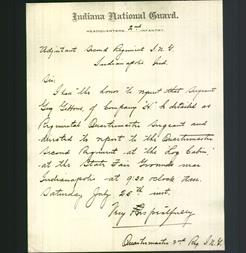 Indiana National Guard.
HEADQUARTERS 2nd INFANTRY.
Adjutant Second Regiment I.N.G.
Indianapolis Ind.
Sir:
I have the honor to request that Sergeant
Geo of Company "H" be detailed as
Regimental Quartermaster Sergeant and
directed to report to the Quartermaster
Second Regiment at the "Log Cabin"
at the State Fair Grounds near
Indianapolis at 9:30 o'clock a.m.
Saturday July 25th inst.
Very Respectfully
Quartermaster 2nd Reg I.N.G.